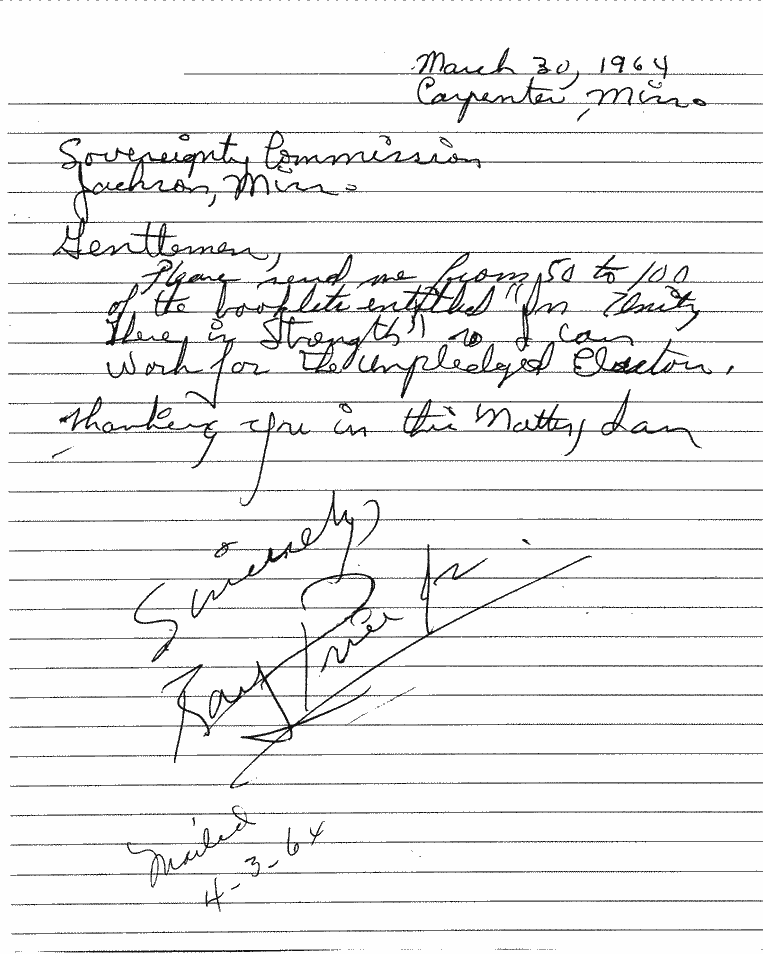 March 30, 1964
Carpenter, Miss.
Sovereignty Commission
Jackson, Miss.
Gentlemen,
Please send me from 50 to 100
of the booklets entitled "In Unity
There is Strength" so I can
Work for the Unpledged Electors.
Thanking you in this Matter, I am
Sincerely,
Ray Price Jr.
Mailed
4-3-64